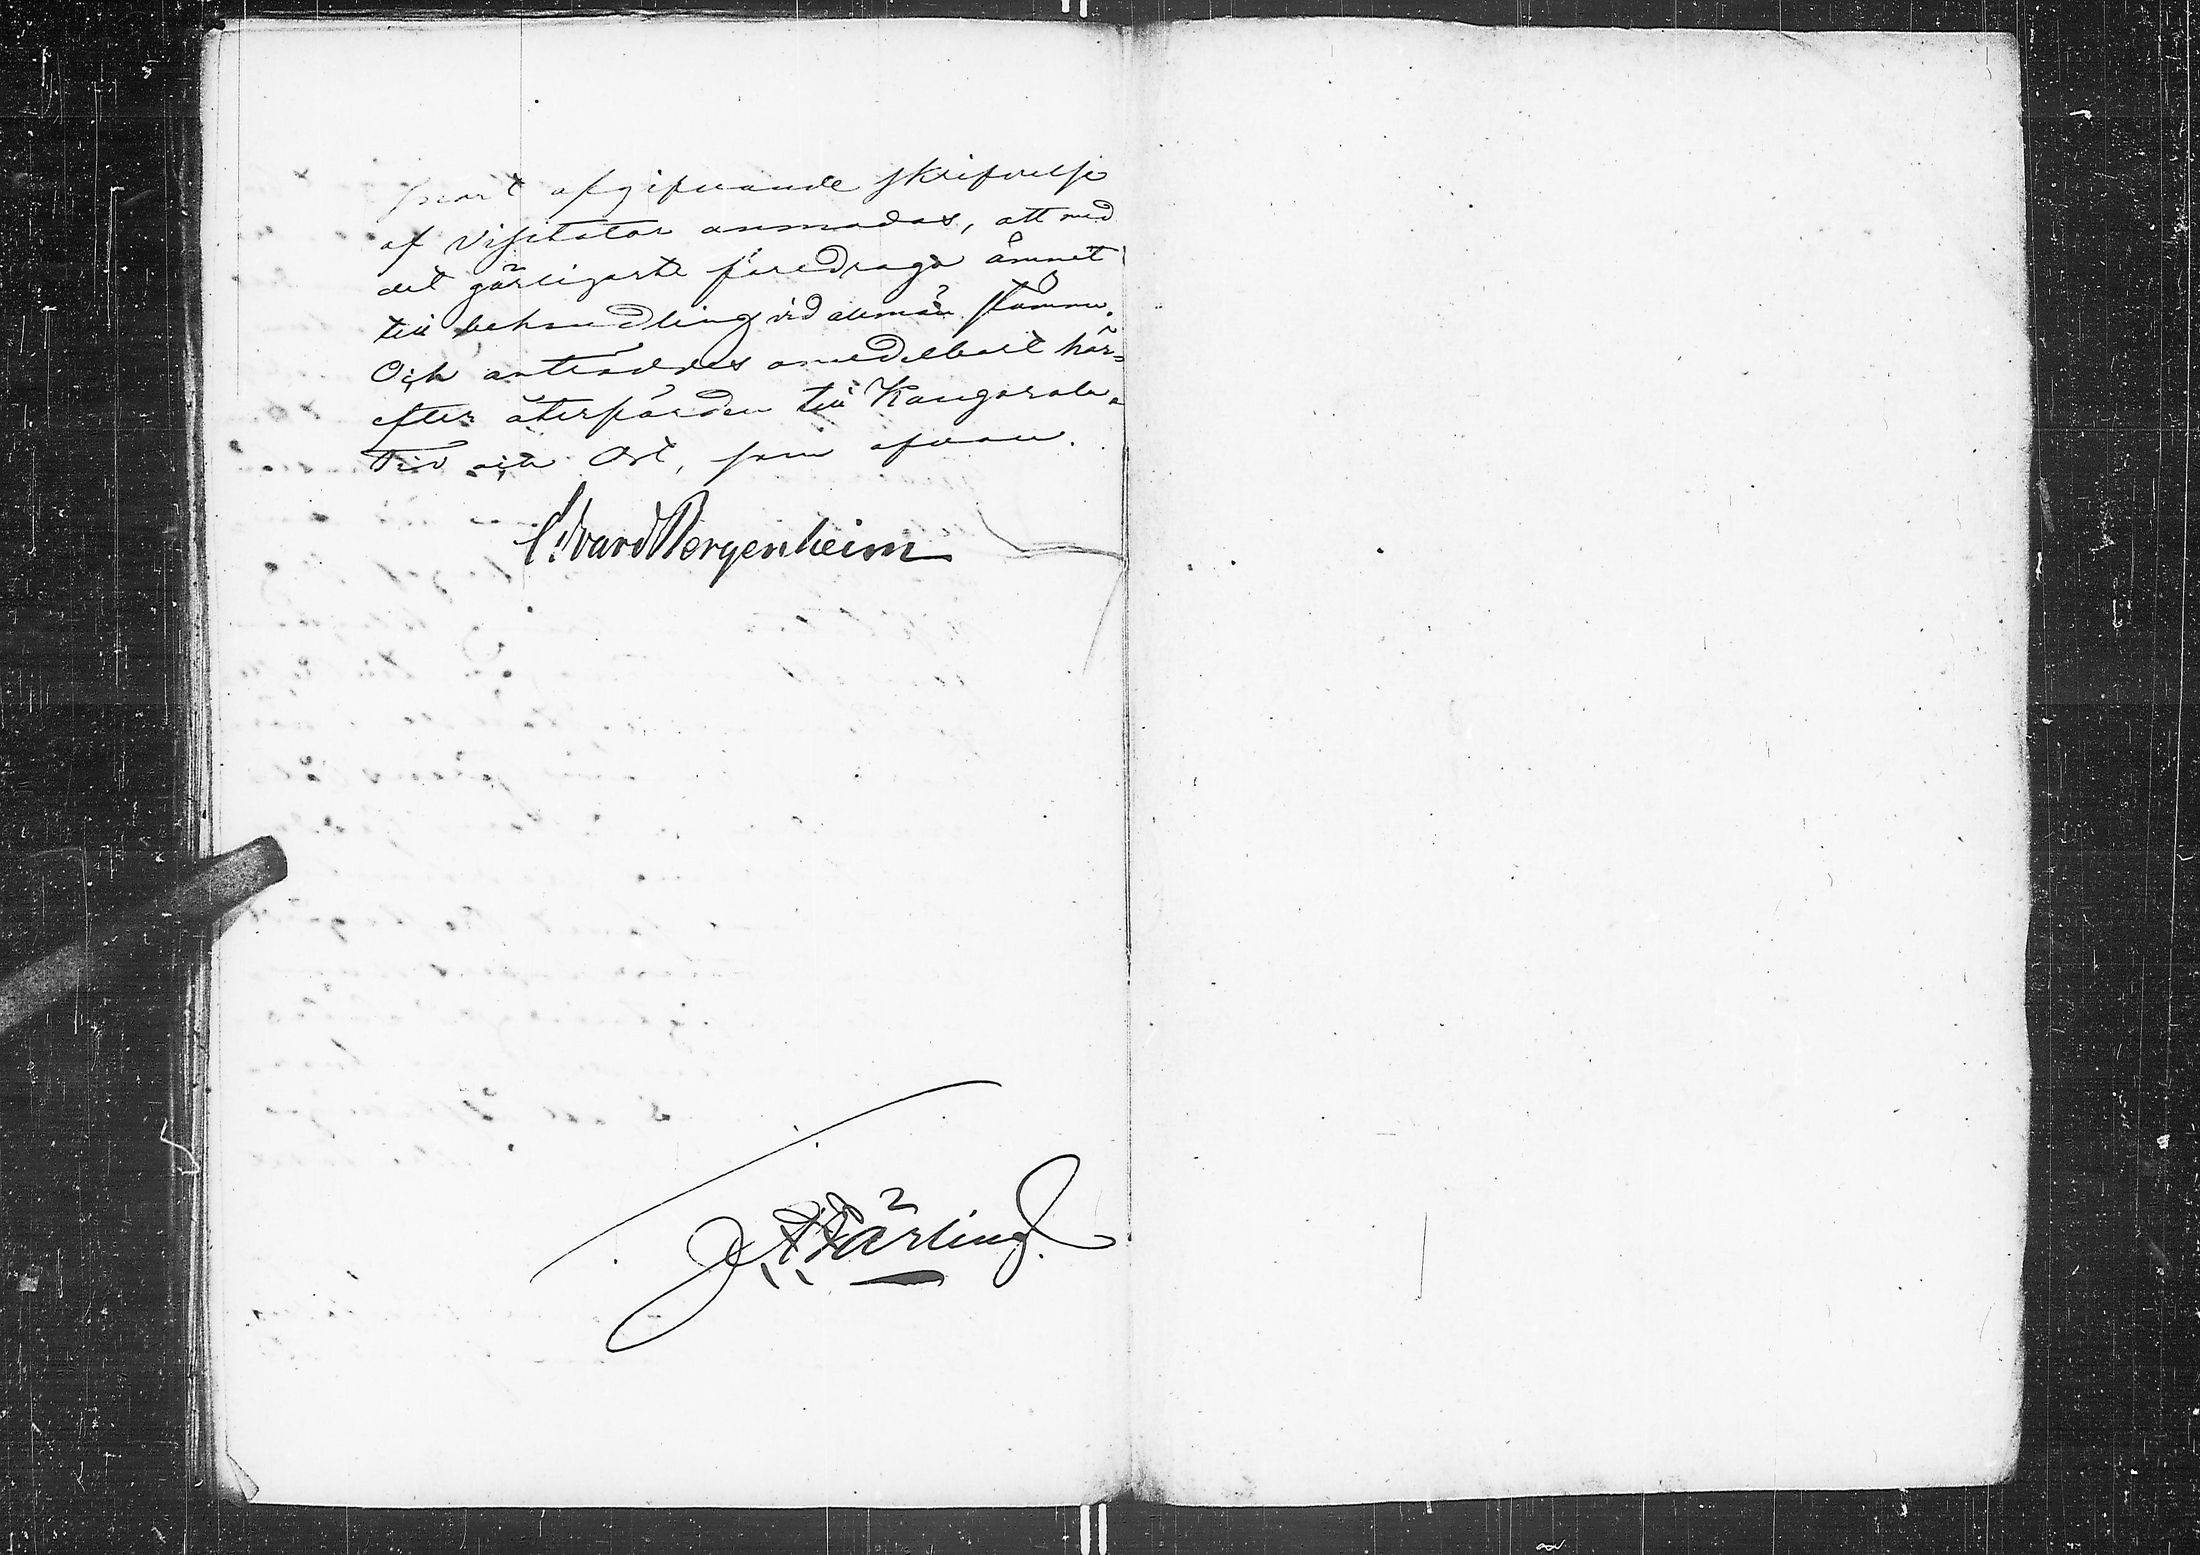 snart afgifvande skrifvelse
af Visitator anmodas, att med
det görligaste föredraga ämnet
till behandling vid allmän stämma.
Och anträddes omedelbart här-
efter återfärden till Kangasala.
Tid och Ort, som ofvan.
Edvard Bergenheim
Färling